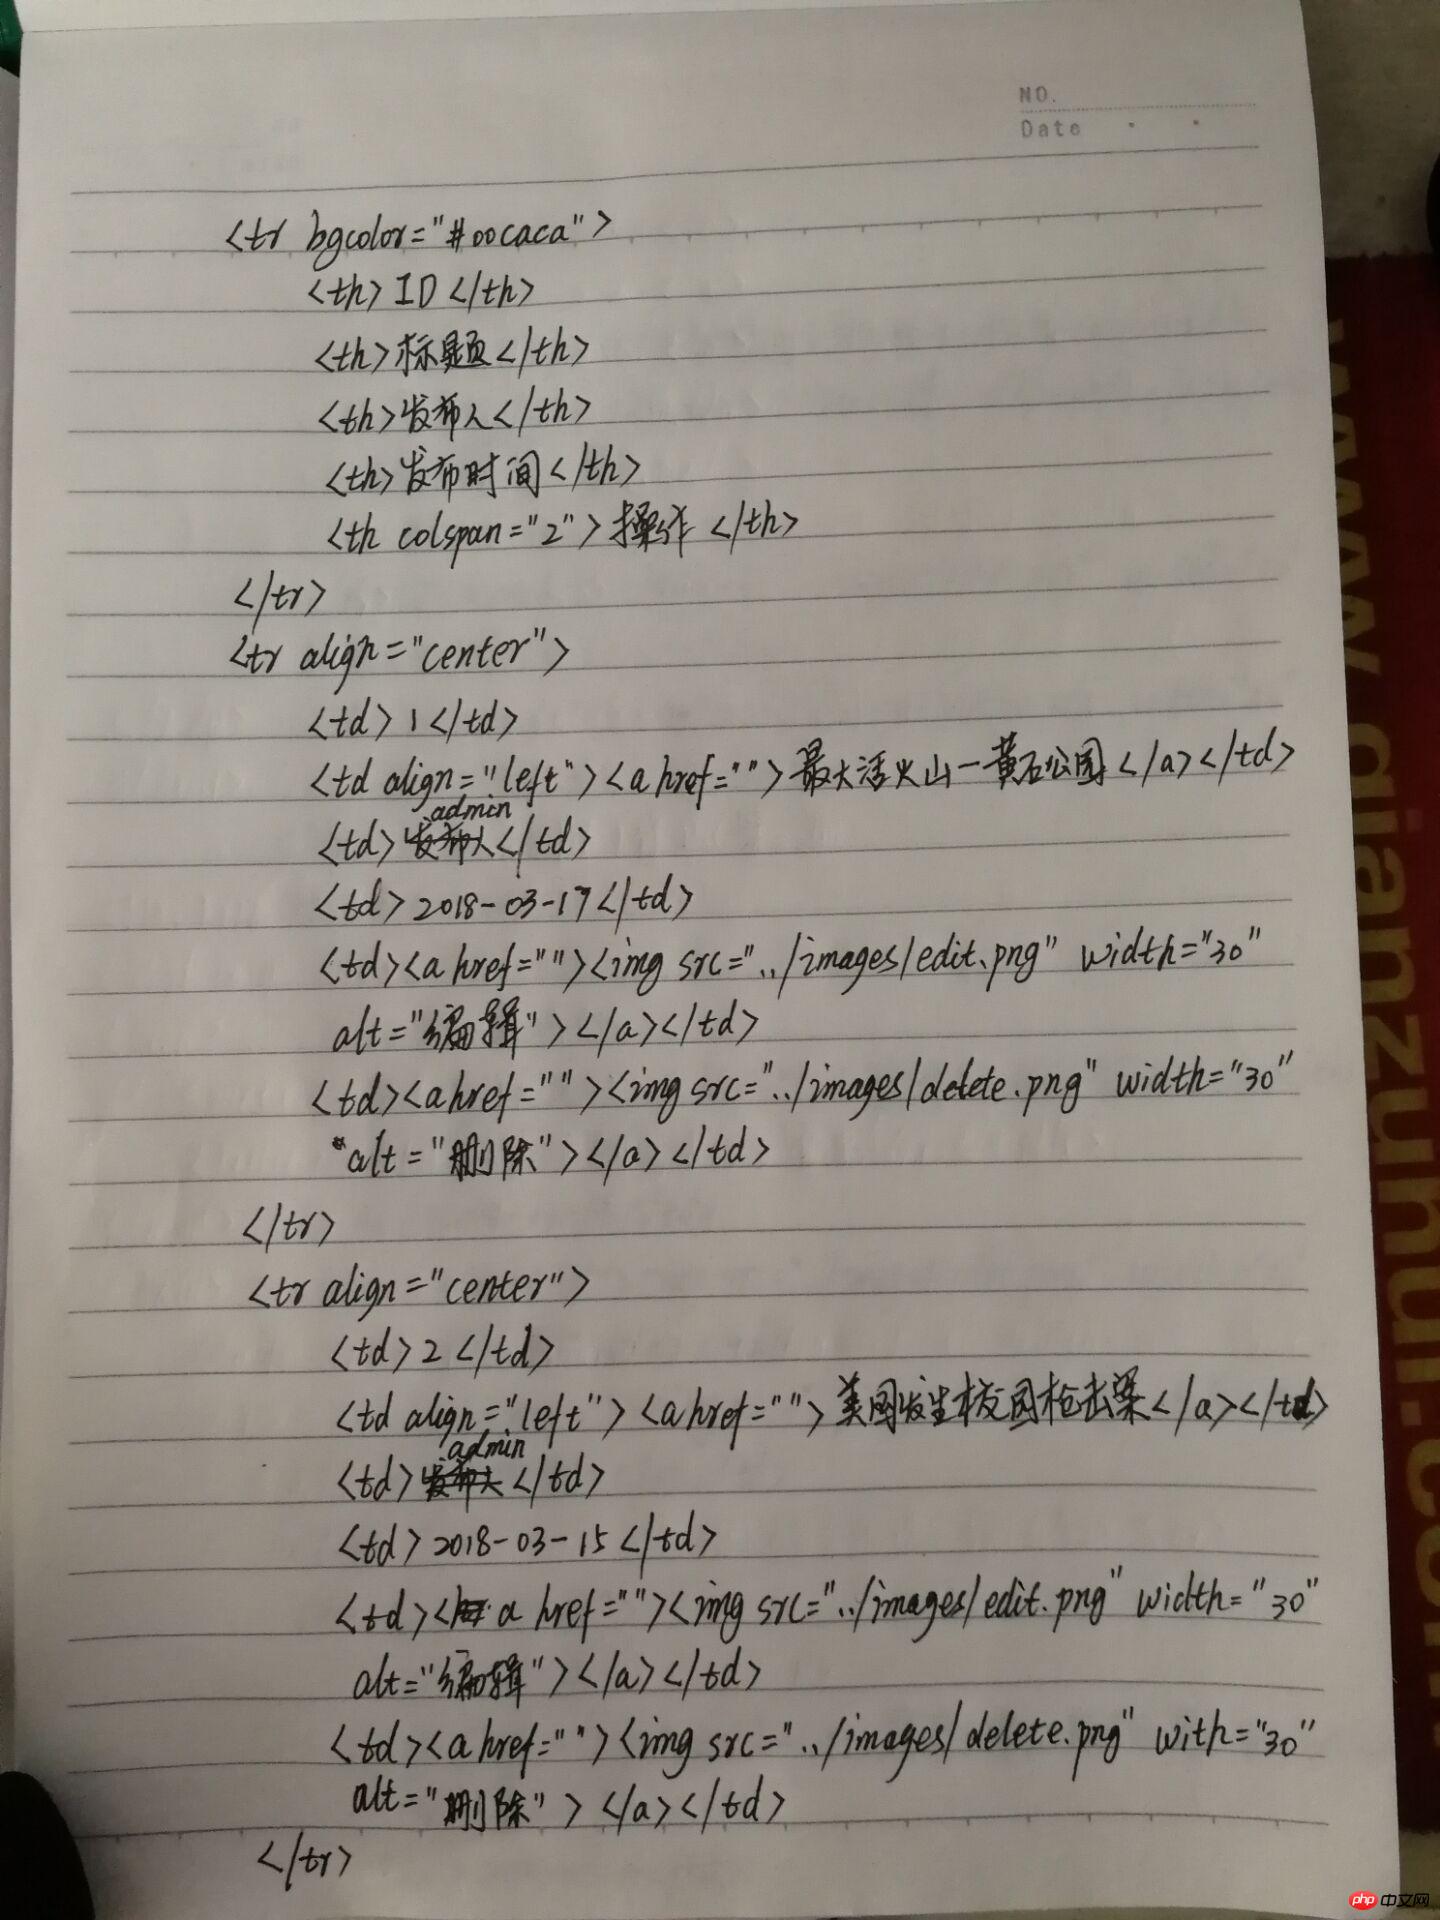 NO.
Date
<tr bgcolor="#00caca">
<th>ID</th>
<th>标题</th>
<th>发布人</th>
<th>发布时间</th>
<th colspan="2">操作</th>
</tr>
<tr align="center">
<td>1</td>
<td align="left"><a href="">最大活火山一黄石公园</a></td>
admin
<td>发布人</td>
<td>2018-03-17</td>
<td><a href=""><img src="../images/edit.png" width="30"
alt="编辑"></a></td>
<td><a href=""><img src="../images/delete.png" width="30"
alt="删除"></a></td>
</tr>
<tr align="center">
<td>2</td>
<td align="left"><a href="">美国发生校园枪击案</a></td>
admin
<td>发布人</td>
<td>2018-03-15</td>
<td><a href=""><img src="../images/edit.png" width="30"
alt="编辑"></a></td>
<td><a href=""><img src="../images/delete.png" with="30"
alt="删除"></a></td>
</tr>
www.qianzuhui.com
php中文网